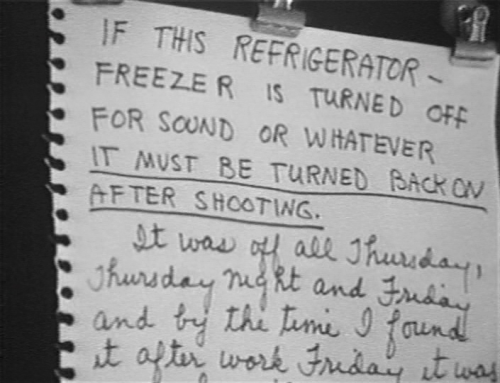 IF THIS REFRIGERATOR -
FREEZER IS TURNED OFF
FOR SOUND OR WHATEVER
IT MUST BE TURNED BACK ON
AFTER SHOOTING.
It was off all Thursday,
Thursday night and Friday
and by the time I found
it after work Friday it was